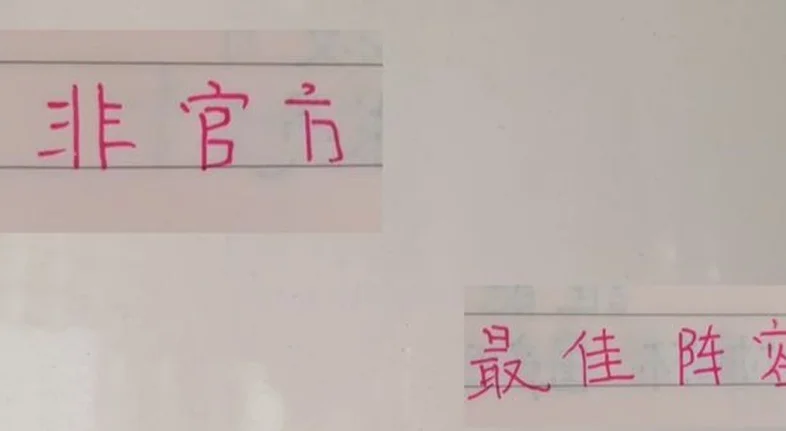 非官方
最佳阵容